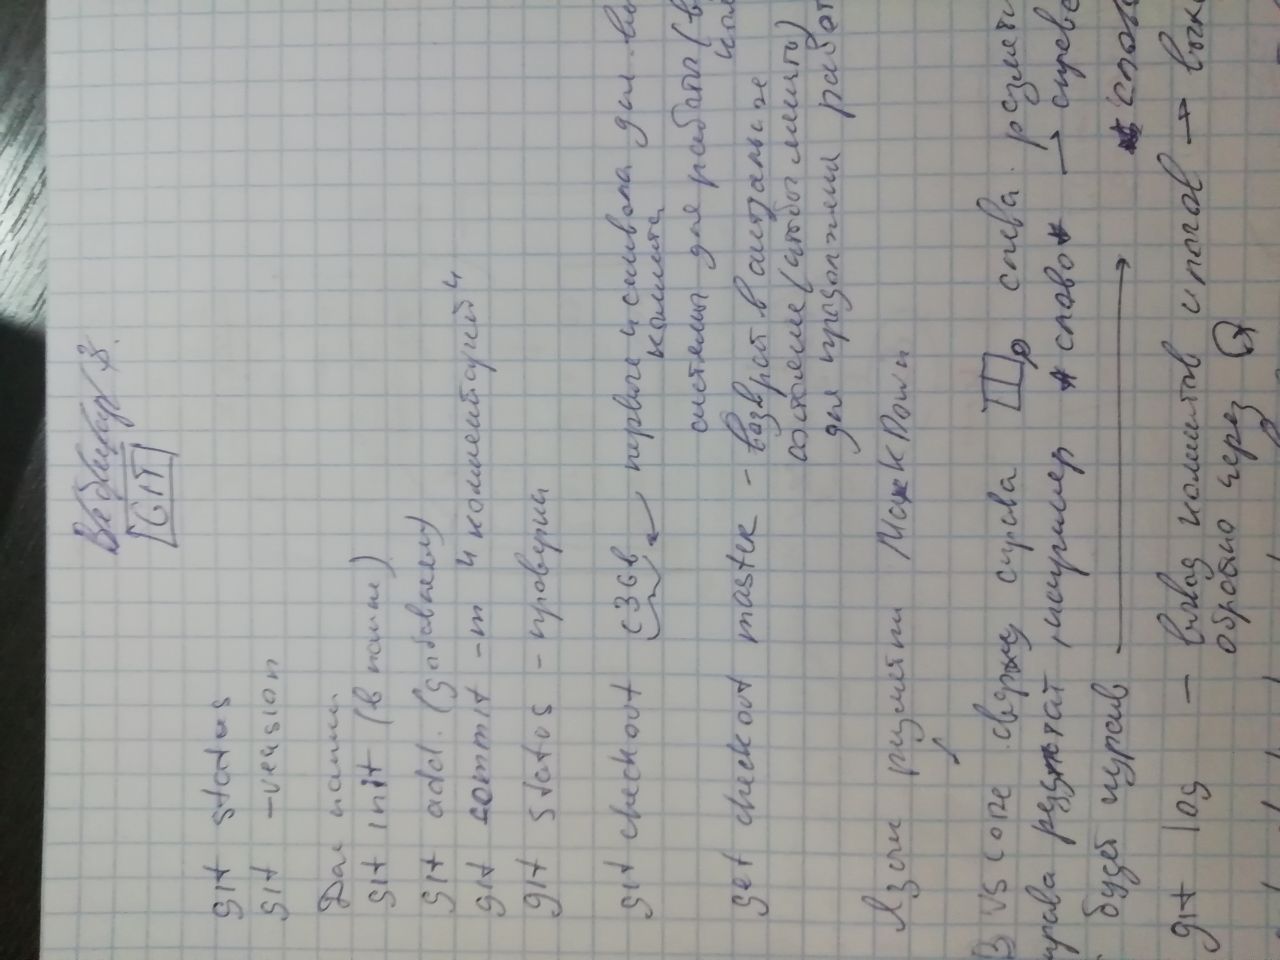 Вебинар 3.
GIT
git status
git -version
Для папки.
git init (в папке)
git add. (добавляем)
git commit -m "комментарий"
git status - проверки
git checkout c36в ← первые 4 символа для
коммита
системы для работы (в
get checkout master - возврат в актуальное
состояние (чтобы
для продолжения работ
Язык разметки МаркДаун
В VS cope сверху справа слева разметк
справа например * слово * → справа
будет курсив
git log - вывод коммитов и логов →
обратно через Q